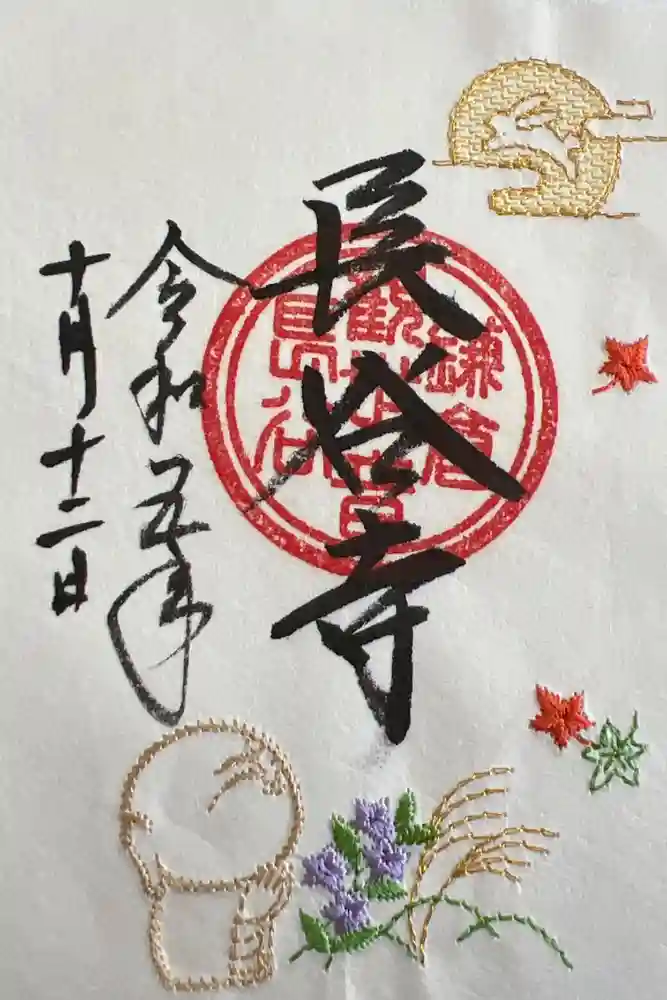 長谷寺
令和五年
十月十二日
鎌倉
觀世音
長谷